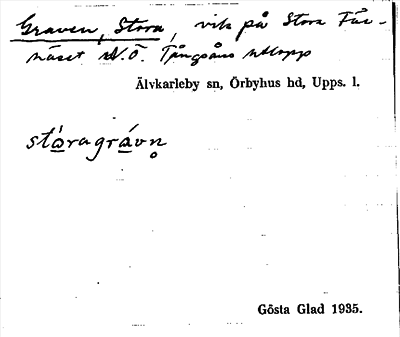 Graven, Stora, vik på Stora Få-
näset N.Ö. Tångsåns utlopp
Älvkarleby sn, Örbyhus hd, Upps. l.
ståragrávn̥
Gösta Glad 1935.